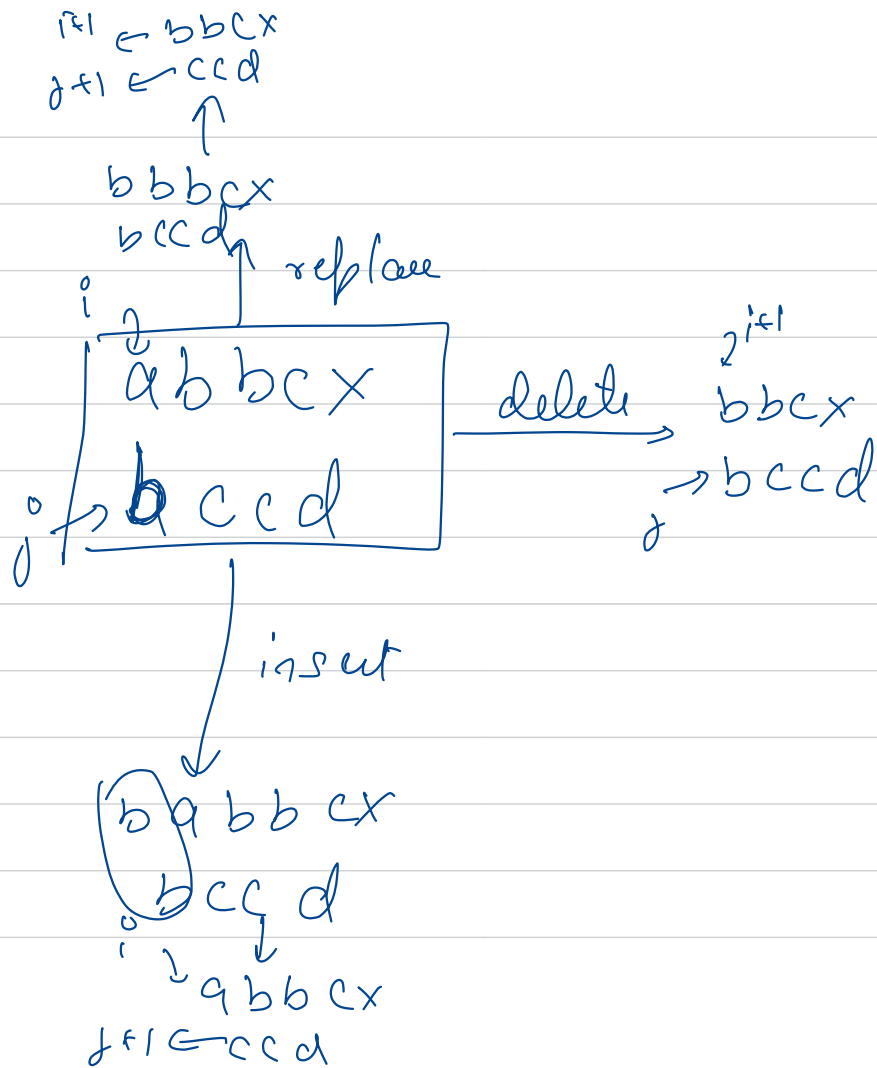 i+1 ← bbcx
j+1 ← ccd
bbbcx
bccd
replace
i
i+1
abbcx
delete
bbcx
j → bccd
j → bccd
insert
babbcx
bccd
i → abbcx
j+1 ← ccd